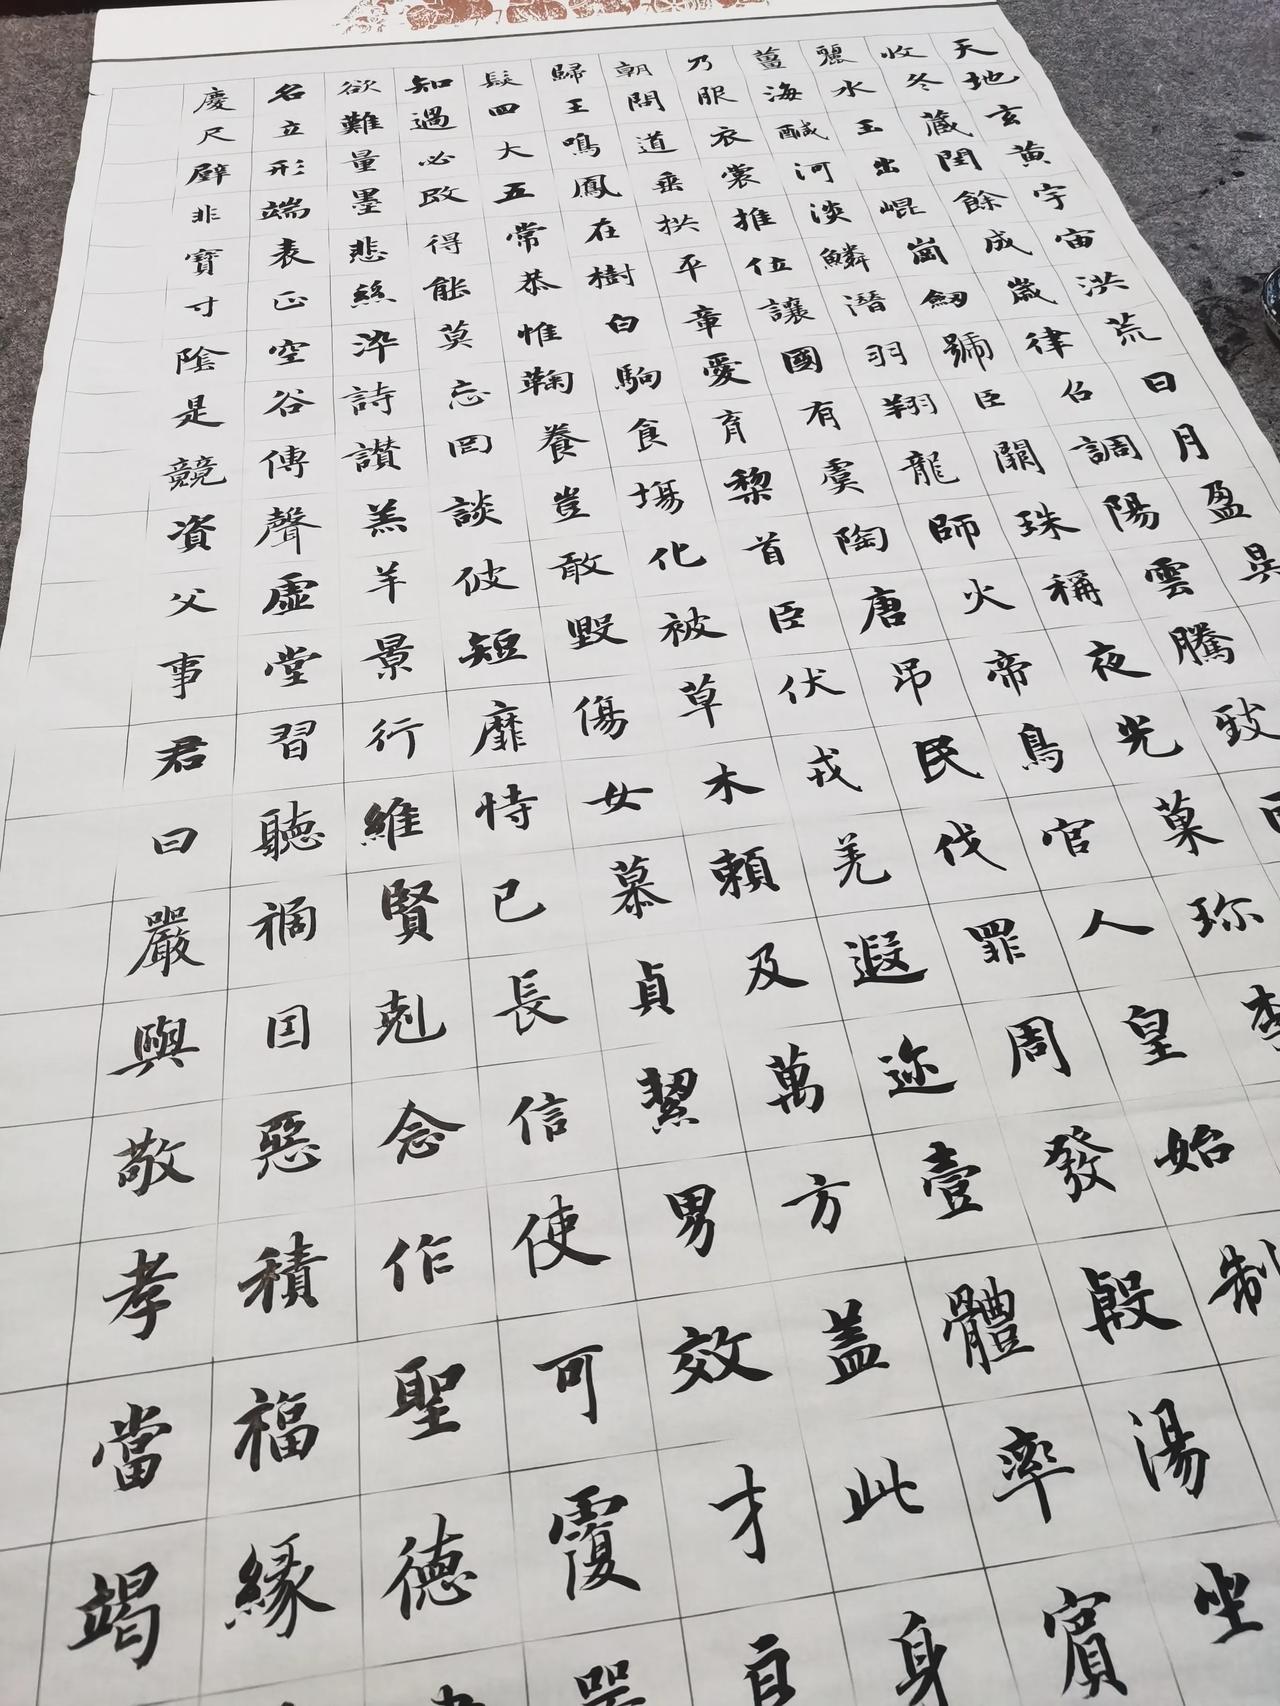 天地玄黄宇宙洪荒日月盈昃
收冬蔵閏餘成歲律召調陽雲騰致
麗水玉出崐崗劒號臣闕珠稱夜光菓珍李
薑海醎河淡鱗潛羽翔龍師火帝鳥官人皇始制
乃服衣裳推位讓國有虞陶唐吊民伐罪周發殷湯坐
朝問道垂拱平章愛育黎首臣伏戎羌遐迩壹體率賓
歸王鳴鳳在樹白駒食塲化被草木賴及萬方盖此身
髮四大五常恭惟鞠養豈敢毀傷女慕貞絜男效才
知過必改得能莫忘罔談彼短靡恃己長信使可覆
欲難量墨悲絲染詩讚羔羊景行維賢剋念作聖德
名立形端表正空谷傳聲虛堂習聽禍因惡積福緣
慶尺璧非寶寸陰是競資父事君曰嚴與敬孝當竭